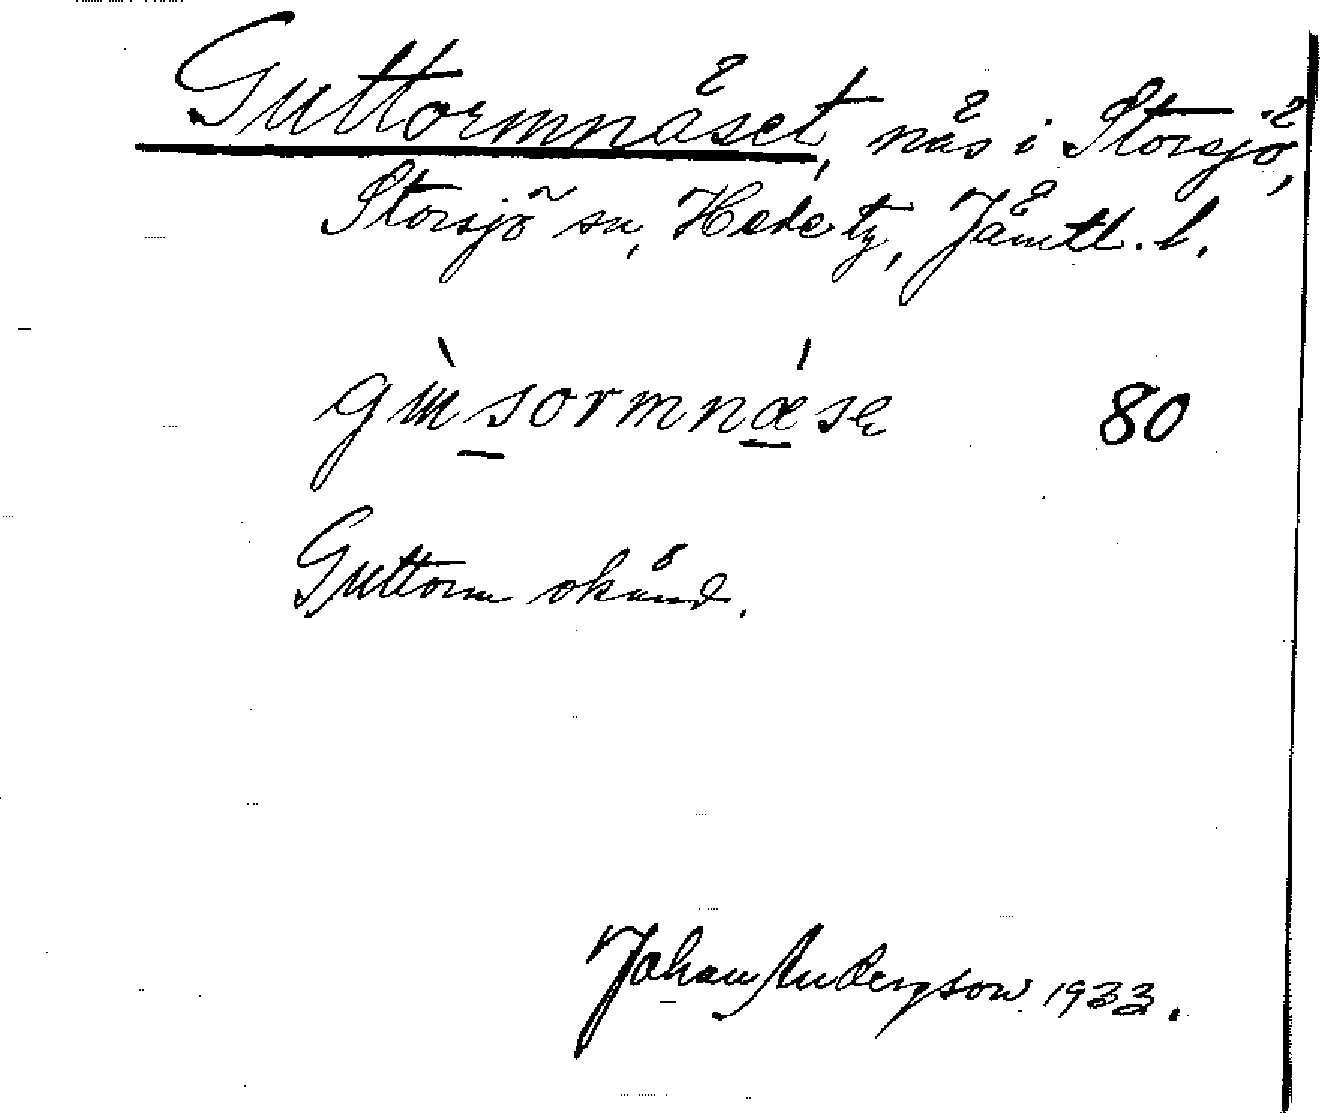 Guttormnäset, näs i Storsjö,
Storsjö sn, Hede tg, Jämtl. l.
80
Guttorm okänd.
Johan Andersson 1933.